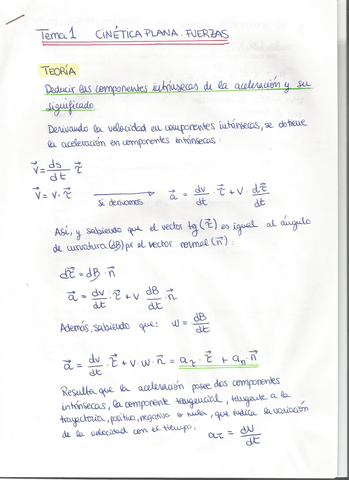 Tema 1 CINÉTICA PLANA. FUERZAS
TEORÍA
Deducir las componentes intrínsecas de la aceleración y su
significado
Derivando la velocidad en componentes intrínsecas, se obtiene
la aceleración en componentes intrínsecas:
v⃗ = ds/dt τ⃗
v⃗ = v · τ⃗ si derivamos → a⃗ = dv/dt · τ⃗ + v · dτ⃗/dt
Así, y sabiendo que el vector tg (τ⃗) es igual al ángulo
de curvatura (dβ) por el vector normal (n⃗):
dτ⃗ = dβ · n⃗
a⃗ = dv/dt · τ⃗ + v dβ/dt · n⃗
Además, sabiendo que: w = dβ/dt
a⃗ = dv/dt · τ⃗ + v · w · n⃗ = aτ · τ⃗ + an · n⃗
Resulta que la aceleración posee dos componentes
intrínsecas, la componente tangencial, tangente a la
trayectoria, positiva, negativa o nula, que indica la variación
de la velocidad con el tiempo: aτ = dv/dt